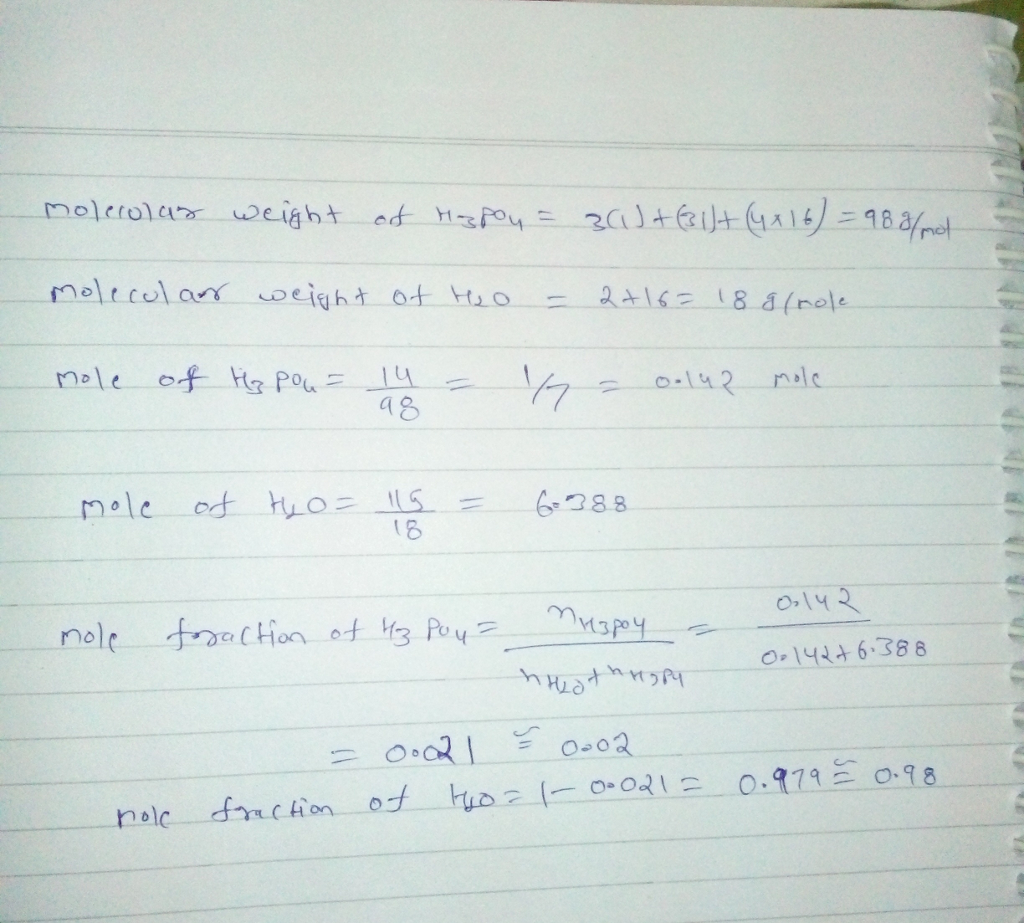 molecular weight of H3PO4 = 3(1)+(31)+(4×16) = 98 g/mol
molecular weight of H2O = 2+16 = 18 g/mole
mole of H3PO4 = 14/98 = 1/7 = 0.142 mole
mole of H2O = 115/18 = 6.388
mole fraction of H3PO4 = nH3PO4/nH2O+nH3PO4 = 0.142/0.142+6.388
= 0.021 ≅ 0.02
mole fraction of H2O = 1-0.021 = 0.979 ≅ 0.98